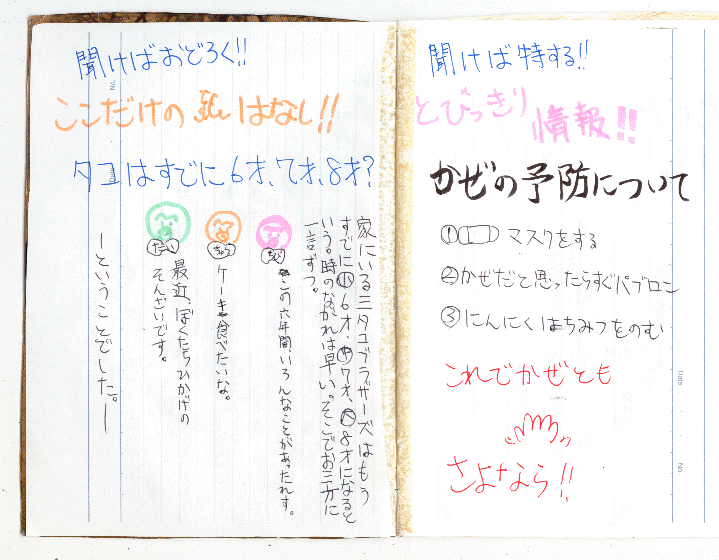 聞けばおどろく!!
ここだけの私はなし!!
タコはすでに6才、7才、8才?
家にいる三タコブラザーズはもう
すでに小6才、中7才、大8才になると
いう。時のながれは早い。そこでお三方に
一言ずつ。
ちび
この六年間いろんなことがあったれす。
ちゅう
ケーキ食べたいな。
たーい
最近、ぼくたちひかげの
そんざいです。
ーということでした。ー
聞けば特する!!
とびっきり
情報!!
かぜの予防について
① マスクをする
②かぜだと思ったらすぐパブロン
③にんにくはちみつをのむ
これでかぜとも
さよなら!!
No.
Date
Date
No